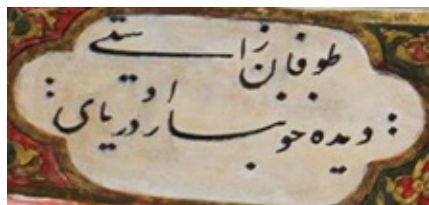 طوفان زاستی
دیده خونبار او دریای